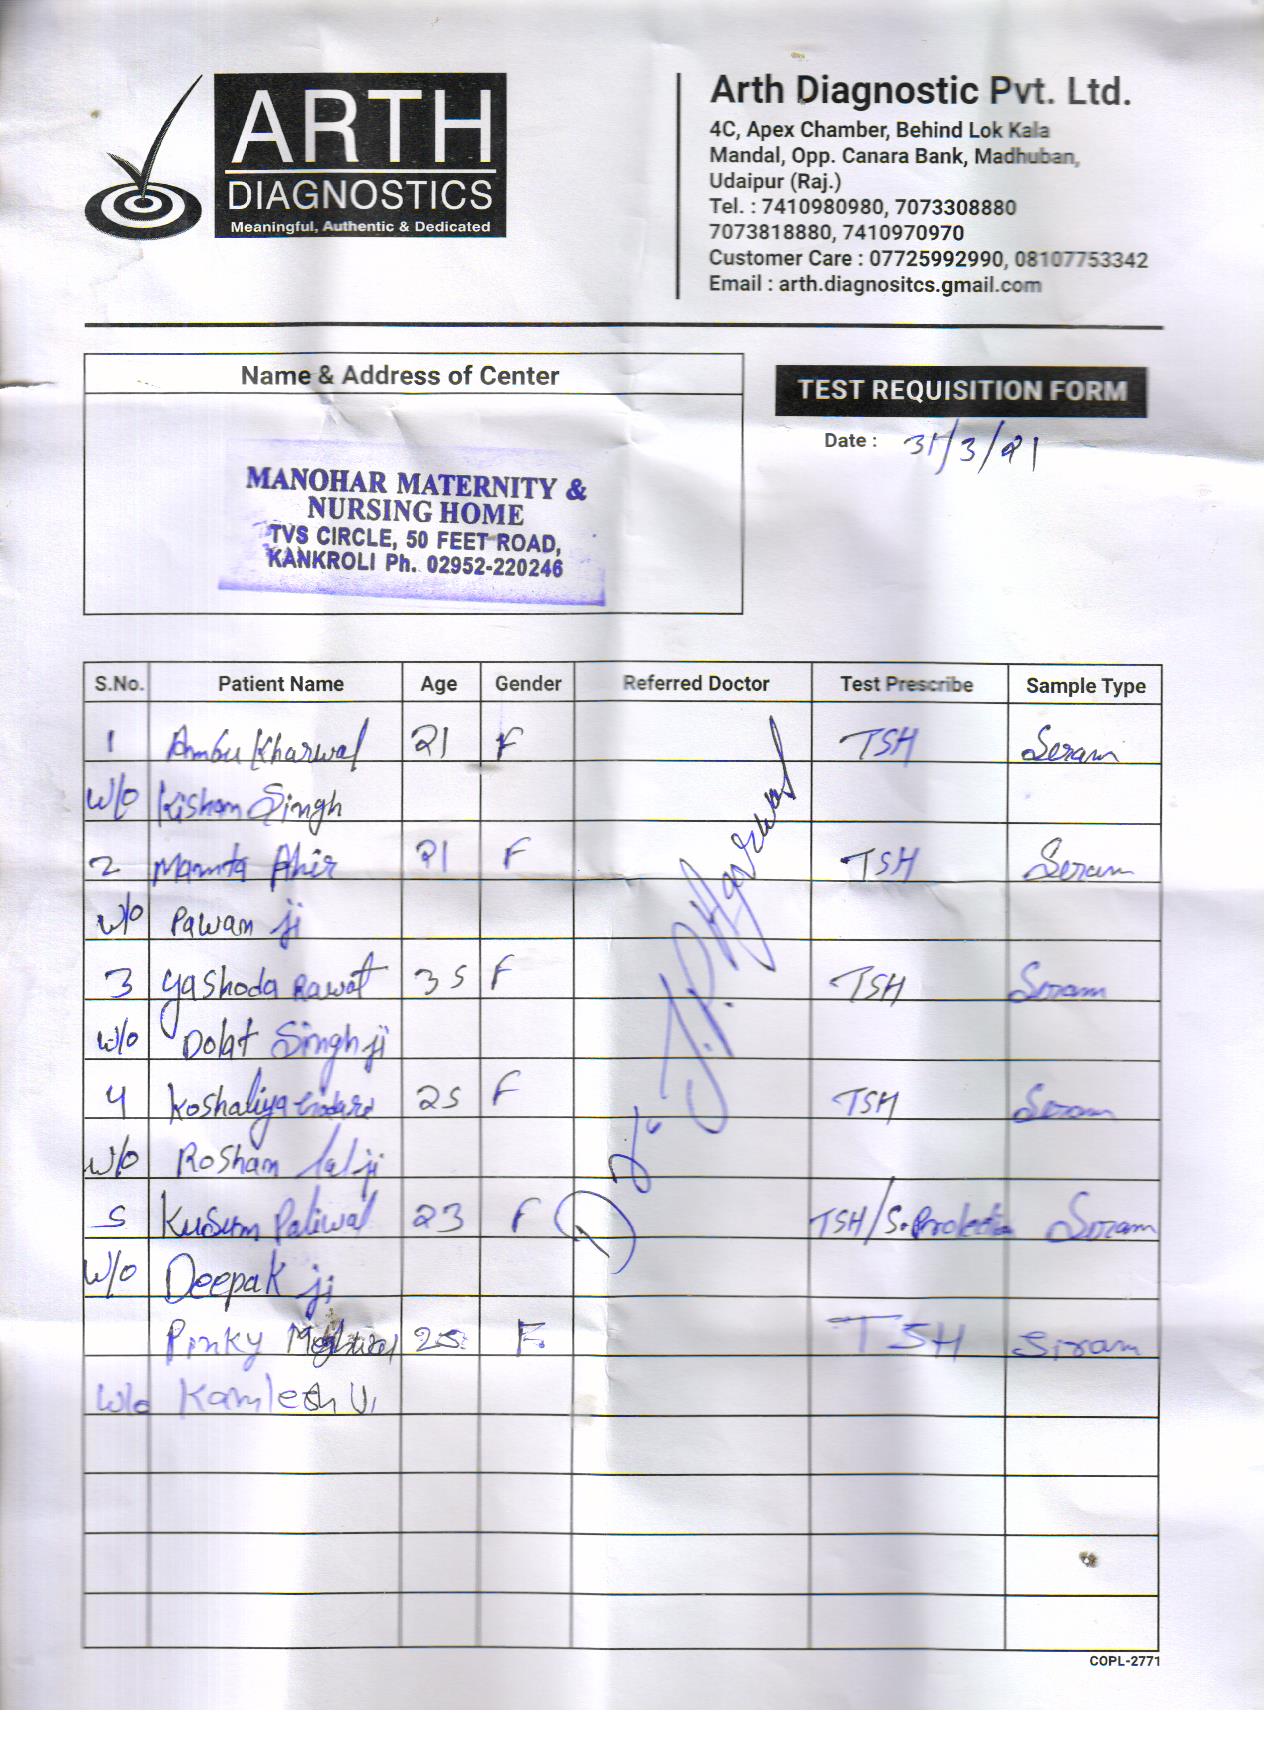 ARTH
DIAGNOSTICS
Meaningful, Authentic & Dedicated
Arth Diagnostic Pvt. Ltd.
4C, Apex Chamber, Behind Lok Kala
Mandal, Opp. Canara Bank, Madhuban,
Udaipur (Raj.)
Tel. : 7410980980, 7073308880
7073818880, 7410970970
Customer Care : 07725992990, 08107753342
Email : arth.diagnositcs.gmail.com
Name & Address of Center
TEST REQUISITION FORM
Date : 31/3/21
MANOHAR MATERNITY &
NURSING HOME
TVS CIRCLE, 50 FEET ROAD,
KANKROLI Ph. 02952-220246
S.No. Patient Name Age Gender Referred Doctor Test Prescribe Sample Type
1 Ambu Kharwal 21 F TSH Seram
W/o Kisham Singh
2 Mamta Ahir 21 F TSH Seram
W/o Pawam ji
3 Yashoda Rawat 35 F TSH Seram
W/o Dolat Singh ji
4 Koshaliya 25 F TSH Seram
W/o Rosham lal ji
Dr J.P. Agarwal
5 Kusum Paliwal 23 F TSH/S. Prolactin Seram
W/o Deepak ji
Pinky 25 F TSH Siram
W/o Kamlesh Ji
COPL-2771